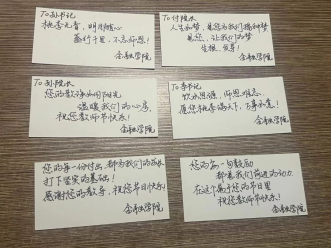 To 孙书记
桃李无言，明月随心
蓦行千里，不忘师恩！
金融学院
To 付院长
人生如梦，是您为我们播种梦
是您，让我们的梦
生根，发芽！
金融学院
To 孙院长
您的教诲如阳光
温暖我们的心房
祝您教师节快乐！
金融学院
To 李书记
饮水思源，师恩难忘
愿您桃李满天下，万事如意！
金融学院
您的每一份付出，都为我们的成长
打下坚实的基础！
感谢您的教导，祝您节日快乐！
金融学院
您的每一句鼓励
都是我们前进的动力
在这个属于您的节日里
祝您教师节快乐！
金融学院